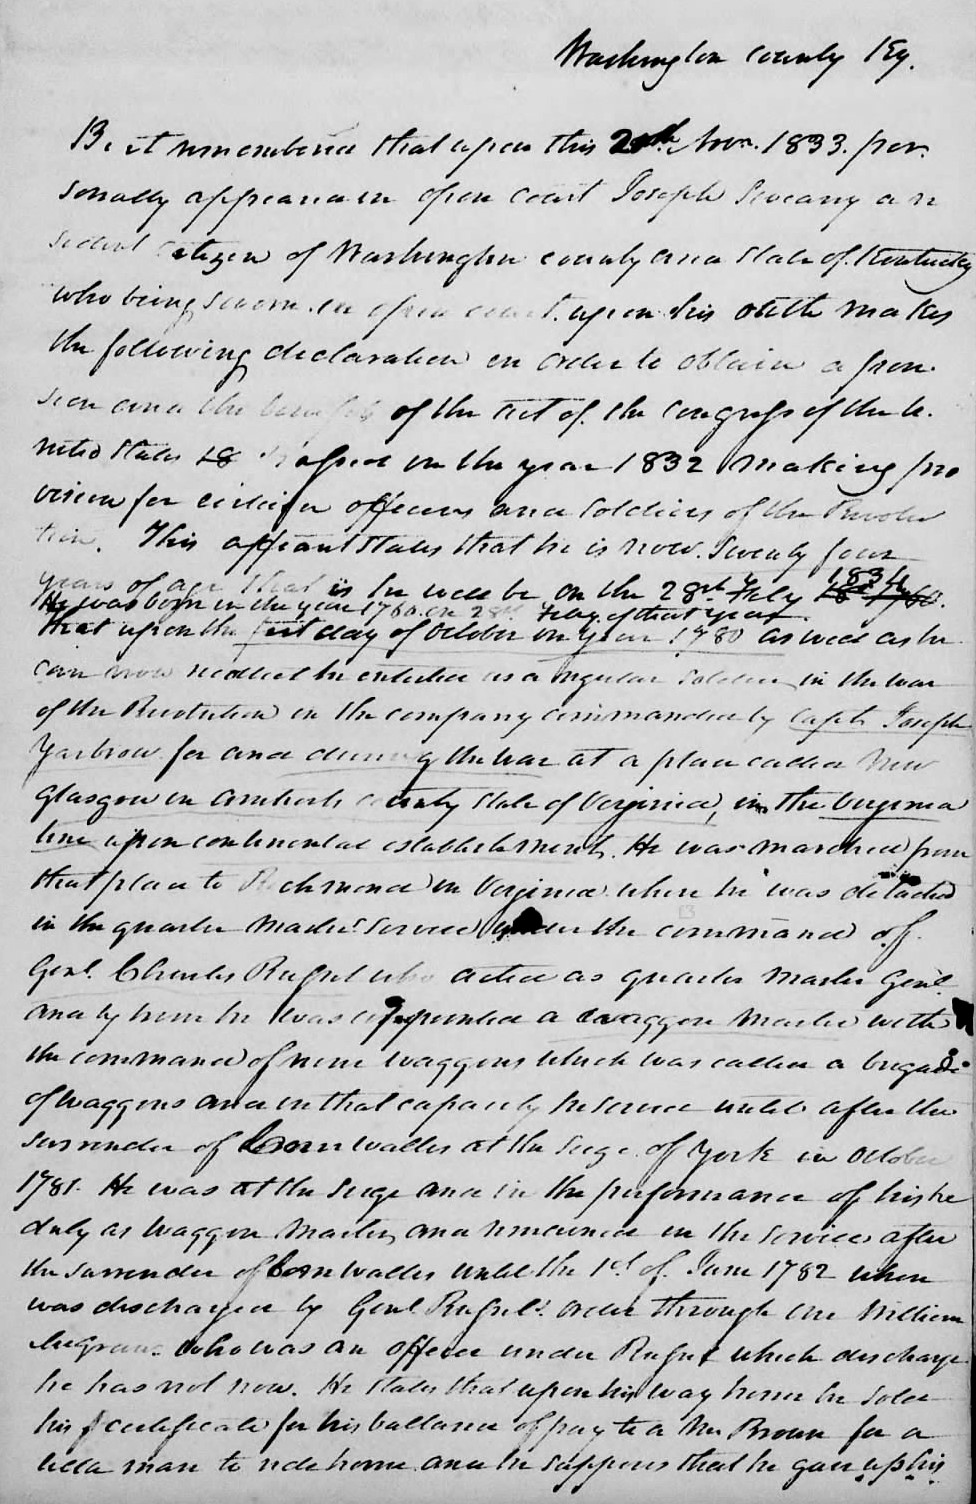 Washington County Ky.
Be it remembered that upon this 20th Novr. 1833. per-
sonally appeared in open court Joseph Sweany a re
sident citizen of Washington county and State of Kentucky
who being sworn in open court upon his oath makes
the following declaration in order to obtain a pen-
sion and the benefit of the act of the Congress of the U.
nited States 18 passed in the year 1832 making pro
vision for certain officers and Soldiers of the Revolu
tion. This affiant States that he is now Seventy four
years of age that is he will be on the 28th Feby 1834
He was born in the year 1760 on 28th Feby of that year.
that upon the first day of October in year 1780 as well as he
can now recollect he enlisted as a regular Soldier in the war
of the Revolution in the company commanded by Capt. Joseph
Yarbrow for and during the war at a place called New
Glasgow in Amherst county State of Virginia, in the Virginia
line upon continental establishment. He was marched from
that place to Richmond in Virginia where he was detached
in the quarter Masters Service under the command of
Genl. Charles Russel who acted as quarter Master Genl.
and by him he was appointed a waggon Master with
the command of nine waggons which was called a brigade
of waggons and in that capacity he served until after the
surrender of Cornwallis at the Siege of York in October
1781. He was at the Siege and in the performance of his
duty as waggon Master, and remained in the service after
the surrender of Cornwallis until the 1st of June 1782 when
was discharged by Genl Russels order through one William
who was an officer under Russel which discharge
he has not now. He States that upon his way home he sold
his certificate for his ballance of pay to a Mr. Brown for a
little mare to ride home and he supposes that he gave up his